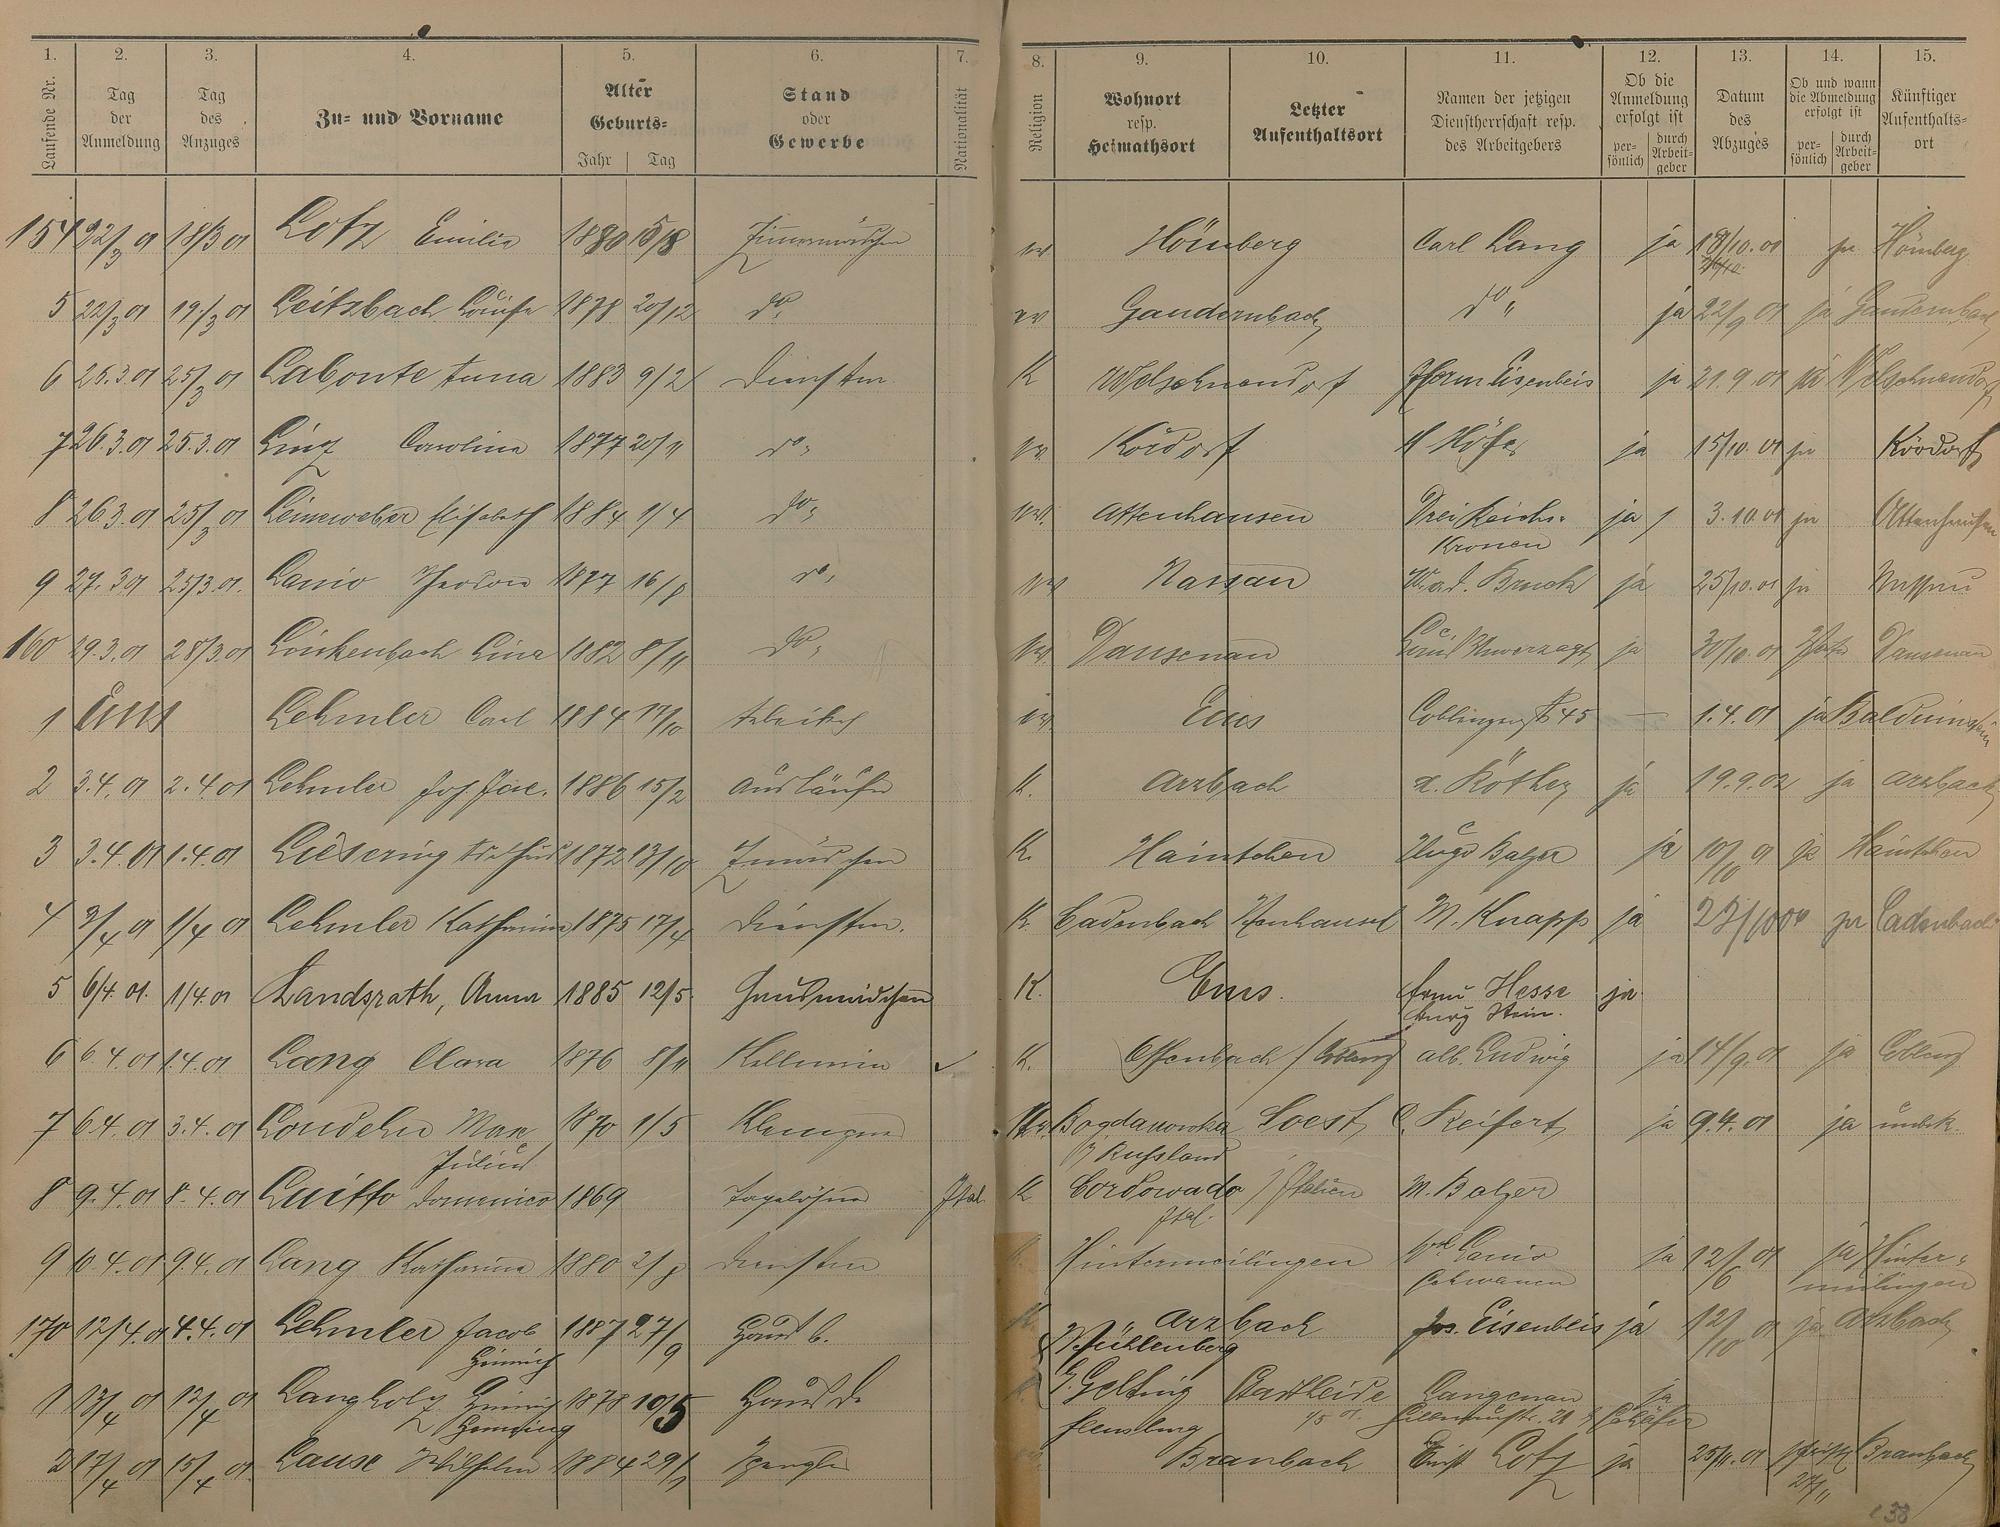 1. 2. 3. 4. 5. 6. 7. 8. 9. 10. 11. 12. 13. 14. 15.
Laufende Nr.
Tag der Anmeldung
Tag des Anzuges
Zu- und Vorname
Alter
Geburts-
Jahr Tag
Stand oder Gewerbe
Nationalität
Religion
Wohnort resp. Heimathsort
Letzter Aufenthaltsort
Namen der jetzigen Dienstherrschaft resp. des Arbeitgebers
Ob die Anmeldung erfolgt ist
persönlich durch Arbeitgeber
Datum des Abzuges
Ob und wann die Abmeldung erfolgt ist
persönlich durch Arbeitgeber
Künftiger Aufenthaltsort
154 22/3 01 18/3 01 Lotz Emilie 1880 15/8 ev Hömberg Carl Lang ja 18/10.01 ja Hömberg
5 22/3 01 19/3 01 Leitzbach Louise 1878 20/12 do. ev Gaudernbach do " ja 22/9 01 ja Gaudernbach
6 26.3.01 25/3 01 Labonte Anna 1883 9/2 Dienstm K Welschneudorf Eisenbeis ja 21.9.01 ja Welschneudorf
7 26.3.01 25.3.01 Linz Carolina 1877 20/11 do. ev. Kördorf H Höfer ja 15/10.01 ja Kördorf
8 26 3.01 25/3 01 Leineweber Elisabeth 1884 1/4 do. ev. Attenhausen Drei Reichs- ja 3.10.01 ja Attenhausen
Kronen
9 27.3 01 25/3.01. Lanio 1877 16/8 do. ev Nassau Wwe. A. Bruch ja 25/10.01 ja Nassau
160 29.3.01 28/3.01 Linkenbach Lina 1882 8/11 do. ev. Dausenau Louis Unverzagt ja 30/10.01 Dausenau
1 Ems Lehmler Carl 1884 17/10 Arbeiter ev. Ems Coblenzerstr 45 — 1.4.01 ja Balduinstein
2 3.4.01 2.4.01 Lehmler Jos Jac. 1886 15/2 Ausläufer K. Arzbach ja 19.9.02 ja Arzbach
3 3.4.01 1.4.01 1872 13/10 K. Haintchen Hugo Balzer ja 10/10 01 ja Haintchen
4 2/4 01 1/4 01 Lehmler Katharina 1875 17/4 Dienstm. K. Cadenbach M. Knapp ja ja Cadenbach
5 6/4.01. 1/4.01 Landsrath, Anna 1885 12/5. Hausmädchen K. Ems. Hesse ja
Burg Stein.
6 6.4.01 1.4.01 Lang Clara 1876 8/11 Kellnerin K. Offenbach / Coblenz Alb. Ludwig ja 14/9.01 ja Coblenz
7 6.4.01 3.4.01 Max 1870 1/5 Klempner Bogdanowka Soest C. Reifert ja 9.4.01 ja unbek.
Julius Russland
8 9.4.01 8.4.01 Domenico 1869 Tagelöhner Ital. K Cordowado / Italien M. Balzer
Ital.
9 10.4.01 9.4.01 Lang Katharina 1880 2/8 Dienstm Hintermeilingen Lanio ja 12/6 01 ja Hinter-
Schwanen meilingen
170 12/4.01 4.4.01 Lehmler Jacob 1887 27/9 Hausb. K. Arzbach Jos. Eisenbeis ja 12/10 01 ja Arzbach
Heinrich Mühlenberg
1 13/4 01 12/4 01 Langholz Heinrich 1878 10/5 Hausd. Gelting Langenau ja
Henning Flensburg
2 17/4 01 15/4 01. Lause Wilhelm 1884 29/1 Spengler Braubach Ernst Lotz ja 25/11.01 Braubach
27/11
38